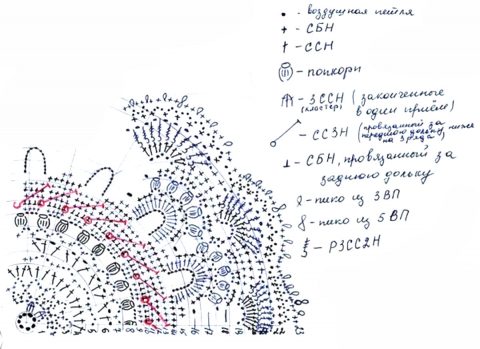 - воздушная петля
- СБН
- ССН
- попкорн
- 3ССН (законченные
(кластер) в один приём)
- СС3Н (провязанный за
переднюю дольку, ниже
на 3 ряда)
- СБН, провязанный за
заднюю дольку
- пико из 3 ВП
- пико из 5 ВП
- РЗСС2Н